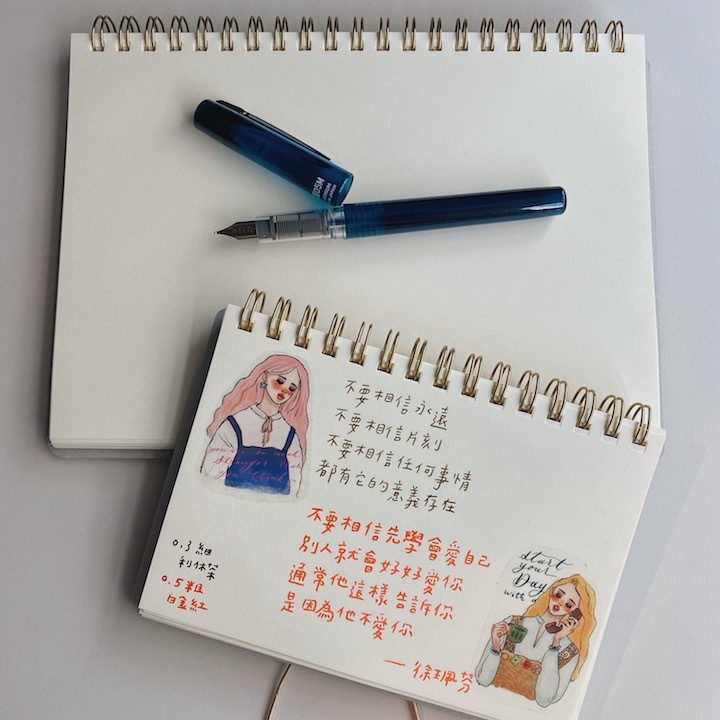 05M
不要相信永遠
不要相信片刻
不要相信任何事情
都有它的意義存在
不要相信先學會愛自己
別人就會好好愛你
通常他這樣告訴你
是因為他不愛你
—徐珮芬
0.3 細
利休茶
0.5 粗
start
your
Day
with a
you
stronger than
you think